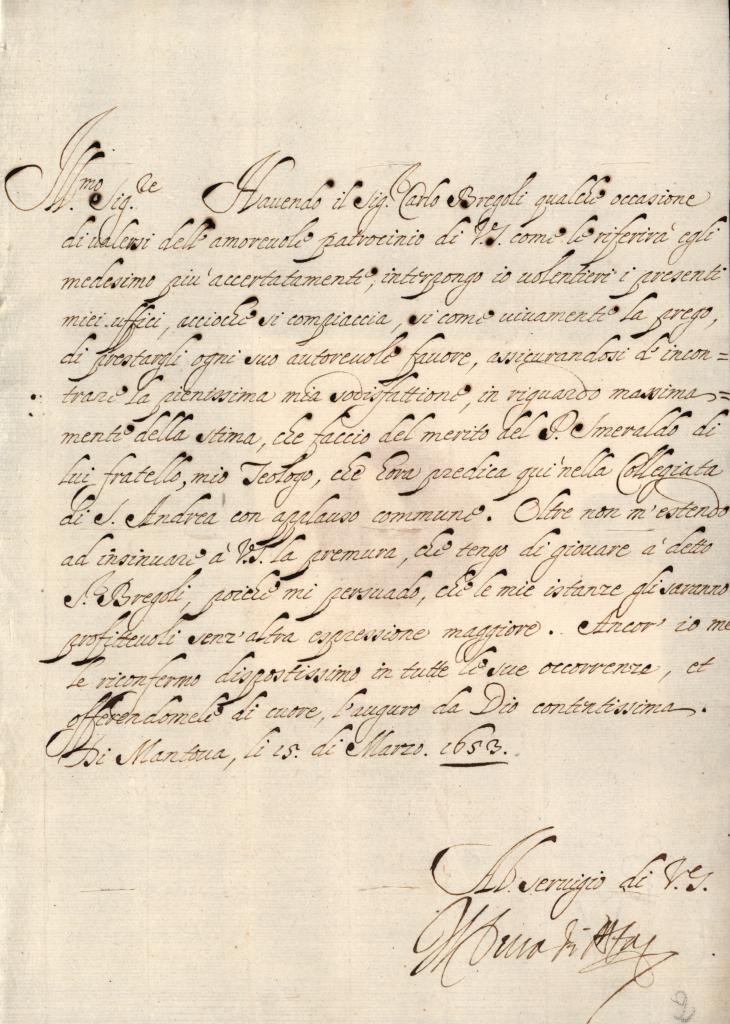 Ill.mo Sig.re Havendo il Sig.r Carlo Bregoli qualche occasione
di valersi dell'amorevole patrocinio di V.S. come le riferirà egli
medesimo più accertatamente, interpongo io volentieri i presenti
miei uffici, accioche si compiaccia, si come vivamente la prego,
di prestargli ogni suo autorevole favore, assicurandosi d'incon=
trare la pienissima mia sodisfattione, in riguardo massima=
mente della stima, che faccio del merito del P. Smeraldo di
lui fratello, mio Teologo, che hora predica qui nella Collegiata
di S. Andrea con applauso commune. Oltre non m'estendo
ad insinuare à V.S. la premura, che tengo di giovare à detto
S.r Bregoli, poiche mi persuado, che le mie istanze gli saranno
profittevoli senz'altra espressione maggiore. Ancor'io me
le riconfermo dispostissimo in tutte le sue occorrenze, et
offerendomele di cuore, l'auguro da Dio contentissima.
Di Mantova, li 15. di Marzo. 1653.
Al servigio di V.S.
Il Duca di
2